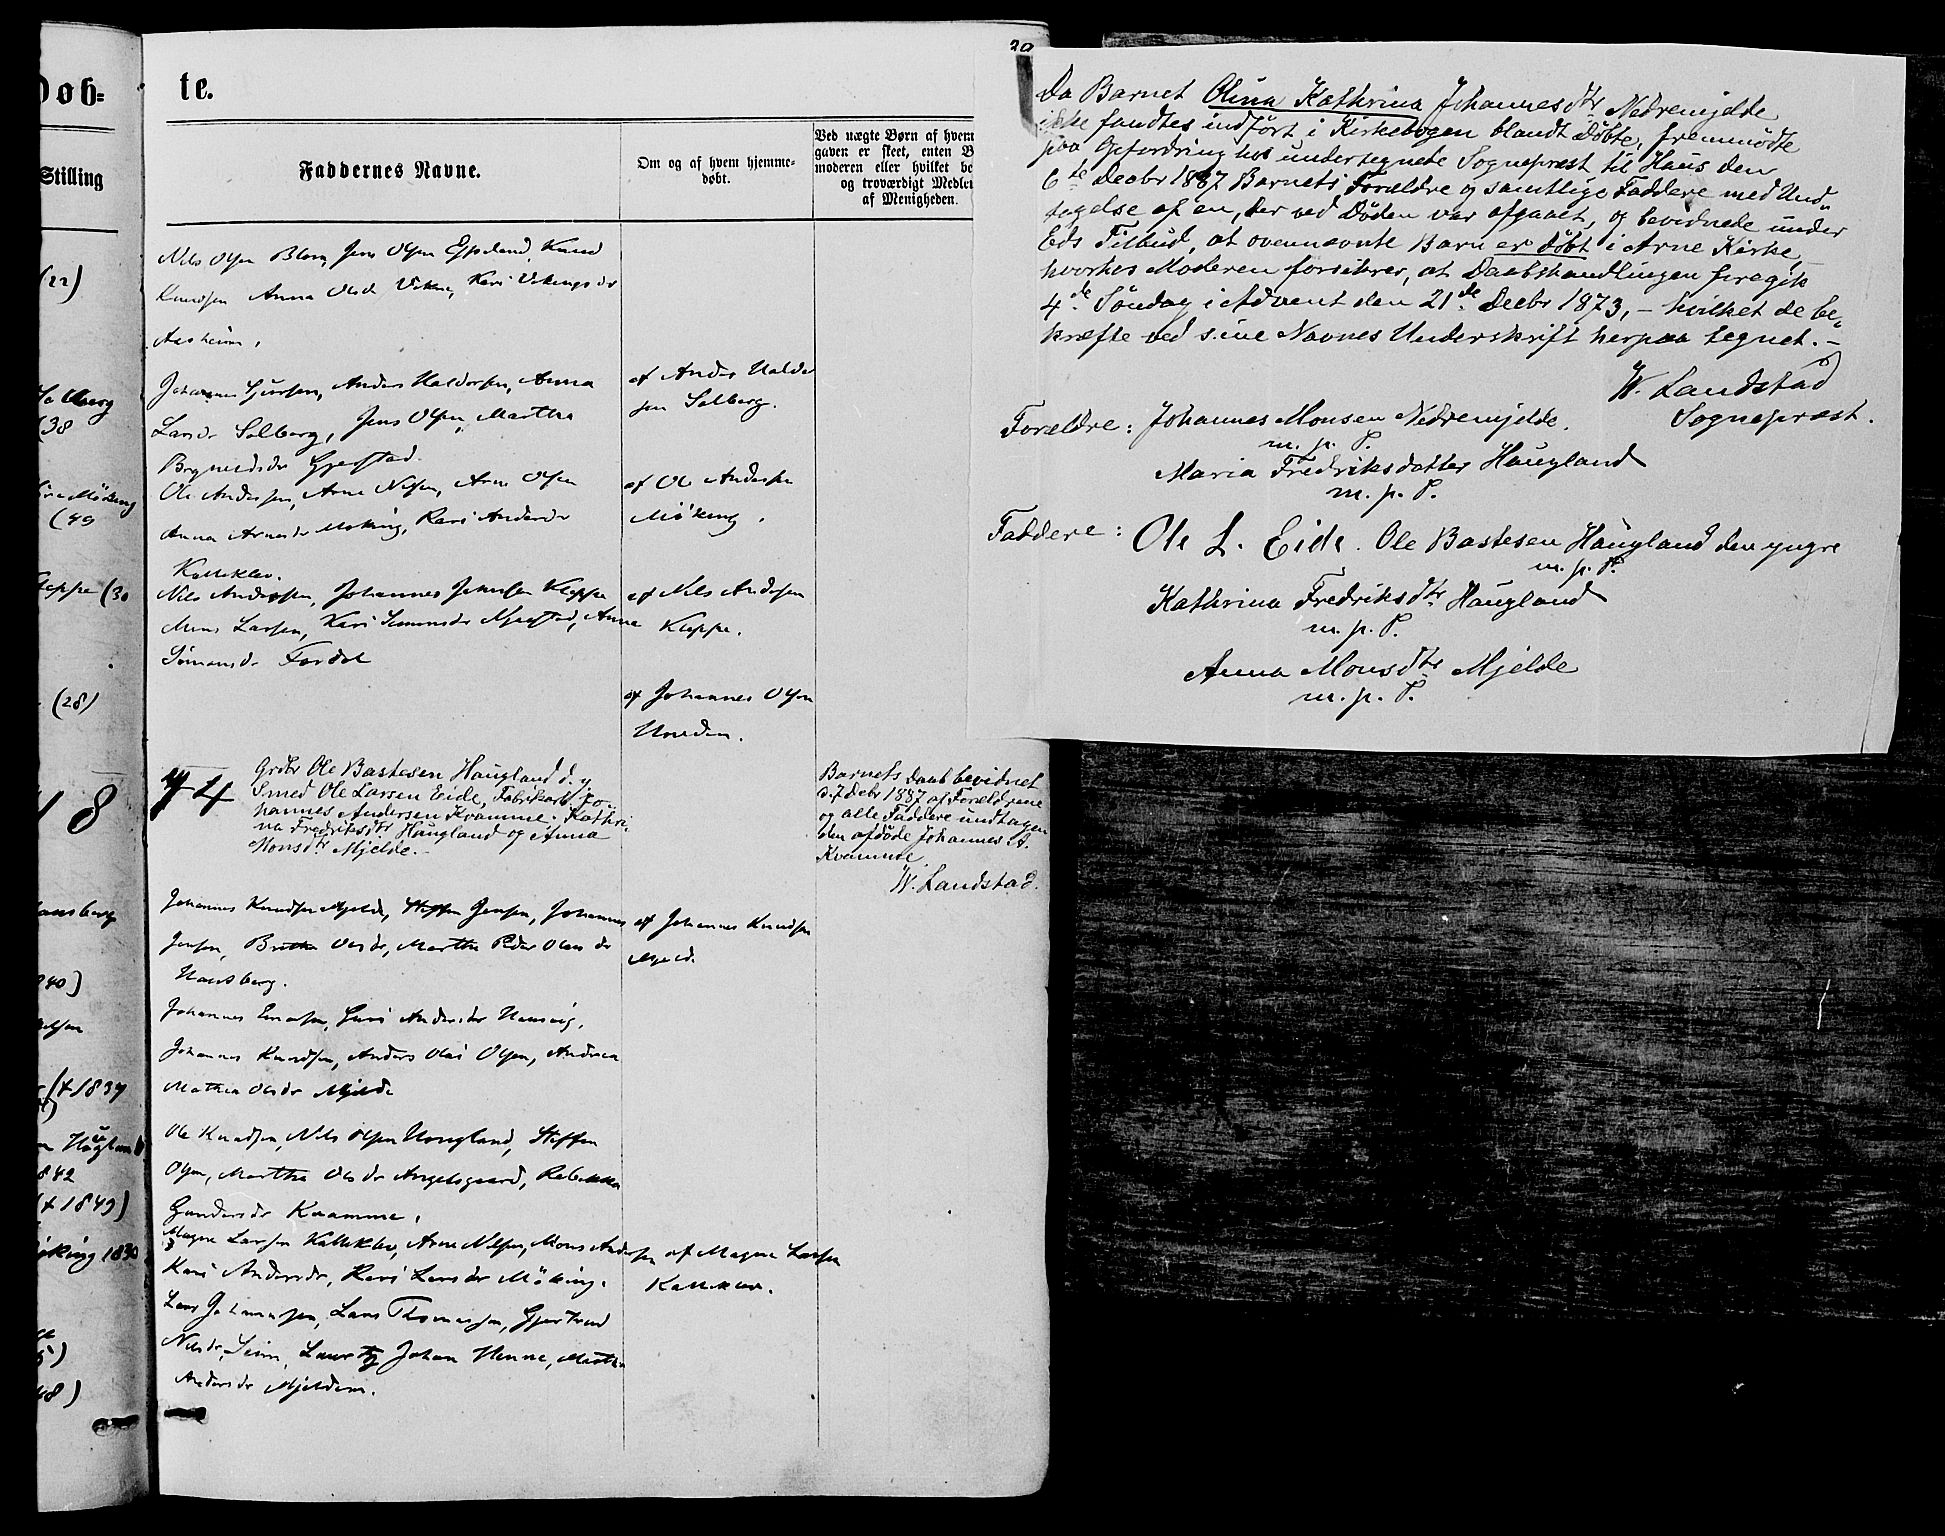 Døb=
te.
Stilling
Faddernes Navne.
Om og af hvem hjemme-
døbt.
Ved uægte Børn af hvem
gaven er skeet, enten B
moderen eller hvilket be
og troværdigt Medle
af Menigheden.
(22)
Nils Olsen Blom, Jens Olsen Espeland, Knud
Knudsen Anna Olsdr Vikne, Kari Vikingsdr
Aasheim,
Johannes Gjursen, Anders Haldorsen, Anna
Larsdr Solberg, Jens Olsen, Martha
Brynildsdr Gjerstad.
af Anders Haldor
sen Solberg.
(38
Ole Andersen, Arne Nilsen, Arne Olsen
Anna Arnesdr Møking, Kari Andersdr
Kalleklev.
af Ole Andersen
Møking.
(49
Kleppe (30
Nils Andersen, Johannes Jensen Kleppe
Mons Larsen, Kari Simonsdr Gjerstad, Anna
Simonsdr Fordal
af Nils Andersen
Kleppe.
(28)
af Johannes Olsen
18
74
Grdbr Ole Bastesen Haugland d. y
Smed Ole Larsen Eide, Fabrikarb. Jo-
hannes Andersen Kvamme. Kathri-
na Fredriksdtr Haugland og Anna
Monsdtr Mjelde.-
Barnets Daab bevidnet
d. 7 Decbr 1887 af Forældrene
og alle Faddere undtagen
den afdøde Johannes A.
Kvamme.
W. Landstad.
Johannes Knudsen Mjelde, Steffen Jensen, Johannes
Jensen, Britha Olsdr, Martha Peder Olens dr
Hansberg.
af Johannes Knudsen
Mjeld.
40)
Johannes Knudsen, Anders Olai Olsen, Andrea
Mathea Olsdr Mjelde
(f 1837
Ole Knudsen, Nils Olsen Hougland, Steffen
Olsen, Martha Olsdr Angelsgaard, Rebekka
Gundersdr Kvamme.
842
(f 1849)
Møking 1830
Magne Larsen Kalleklev, Arne Nilsen, Mons Andersen
Kari Andersdr, Kari Larsdr Møking.
af Magne Larsen
Kalleklev.
Lars Johannesen, Lars Thomassen, Gjertrud
Nilsdr Seim, Lauritz Johan Henne, Martha
Andersdr Mjeldem.
48)
Da Barnet Olina Kathrina Johannesdtr Nedremjelde
ikke fandtes indført i Kirkebogen blandt Døbte, fremmødte
paa Opfordring hos undertegnede Sogneprest til Haus den
6te Decbr 1887 Barnets Forældre og samtlige Faddere med Und-
tagelse af en, der ved Døden var afgaaet, og bevidnede under
Eds Tilbud, at ovennævnte Barn er døbt i Arne Kirke,
hvorhos Moderen forsikrer, at Daabshandlingen foregik
4de Søndag i Advent den 21de Decbr 1873, - hvilket de be-
kræfte ved sine Navnes Underskrift herpaa tegnet. -
W. Landstad
Sogneprest.
Forældre: Johannes Monsen Nedremjelde.
m. p. P.
Maria Fredriksdatter Haugland
m. p. P.
Faddere: Ole L. Eide. Ole Bastesen Haugland den yngre
m. p. P.
Kathrina Fredriksdtr Haugland
m. p. P.
Anna Monsdtr Mjelde
m. p. P.